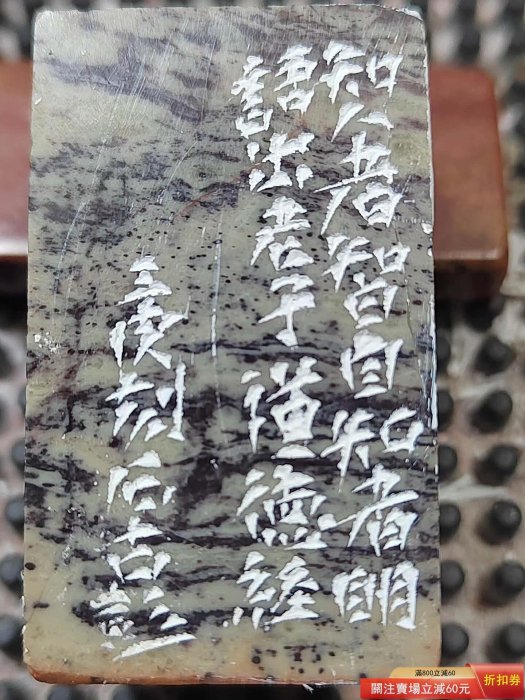 知人者智自知者明
語出老子道德經
刻
滿800立減60
關注賣場立減60元
折扣券